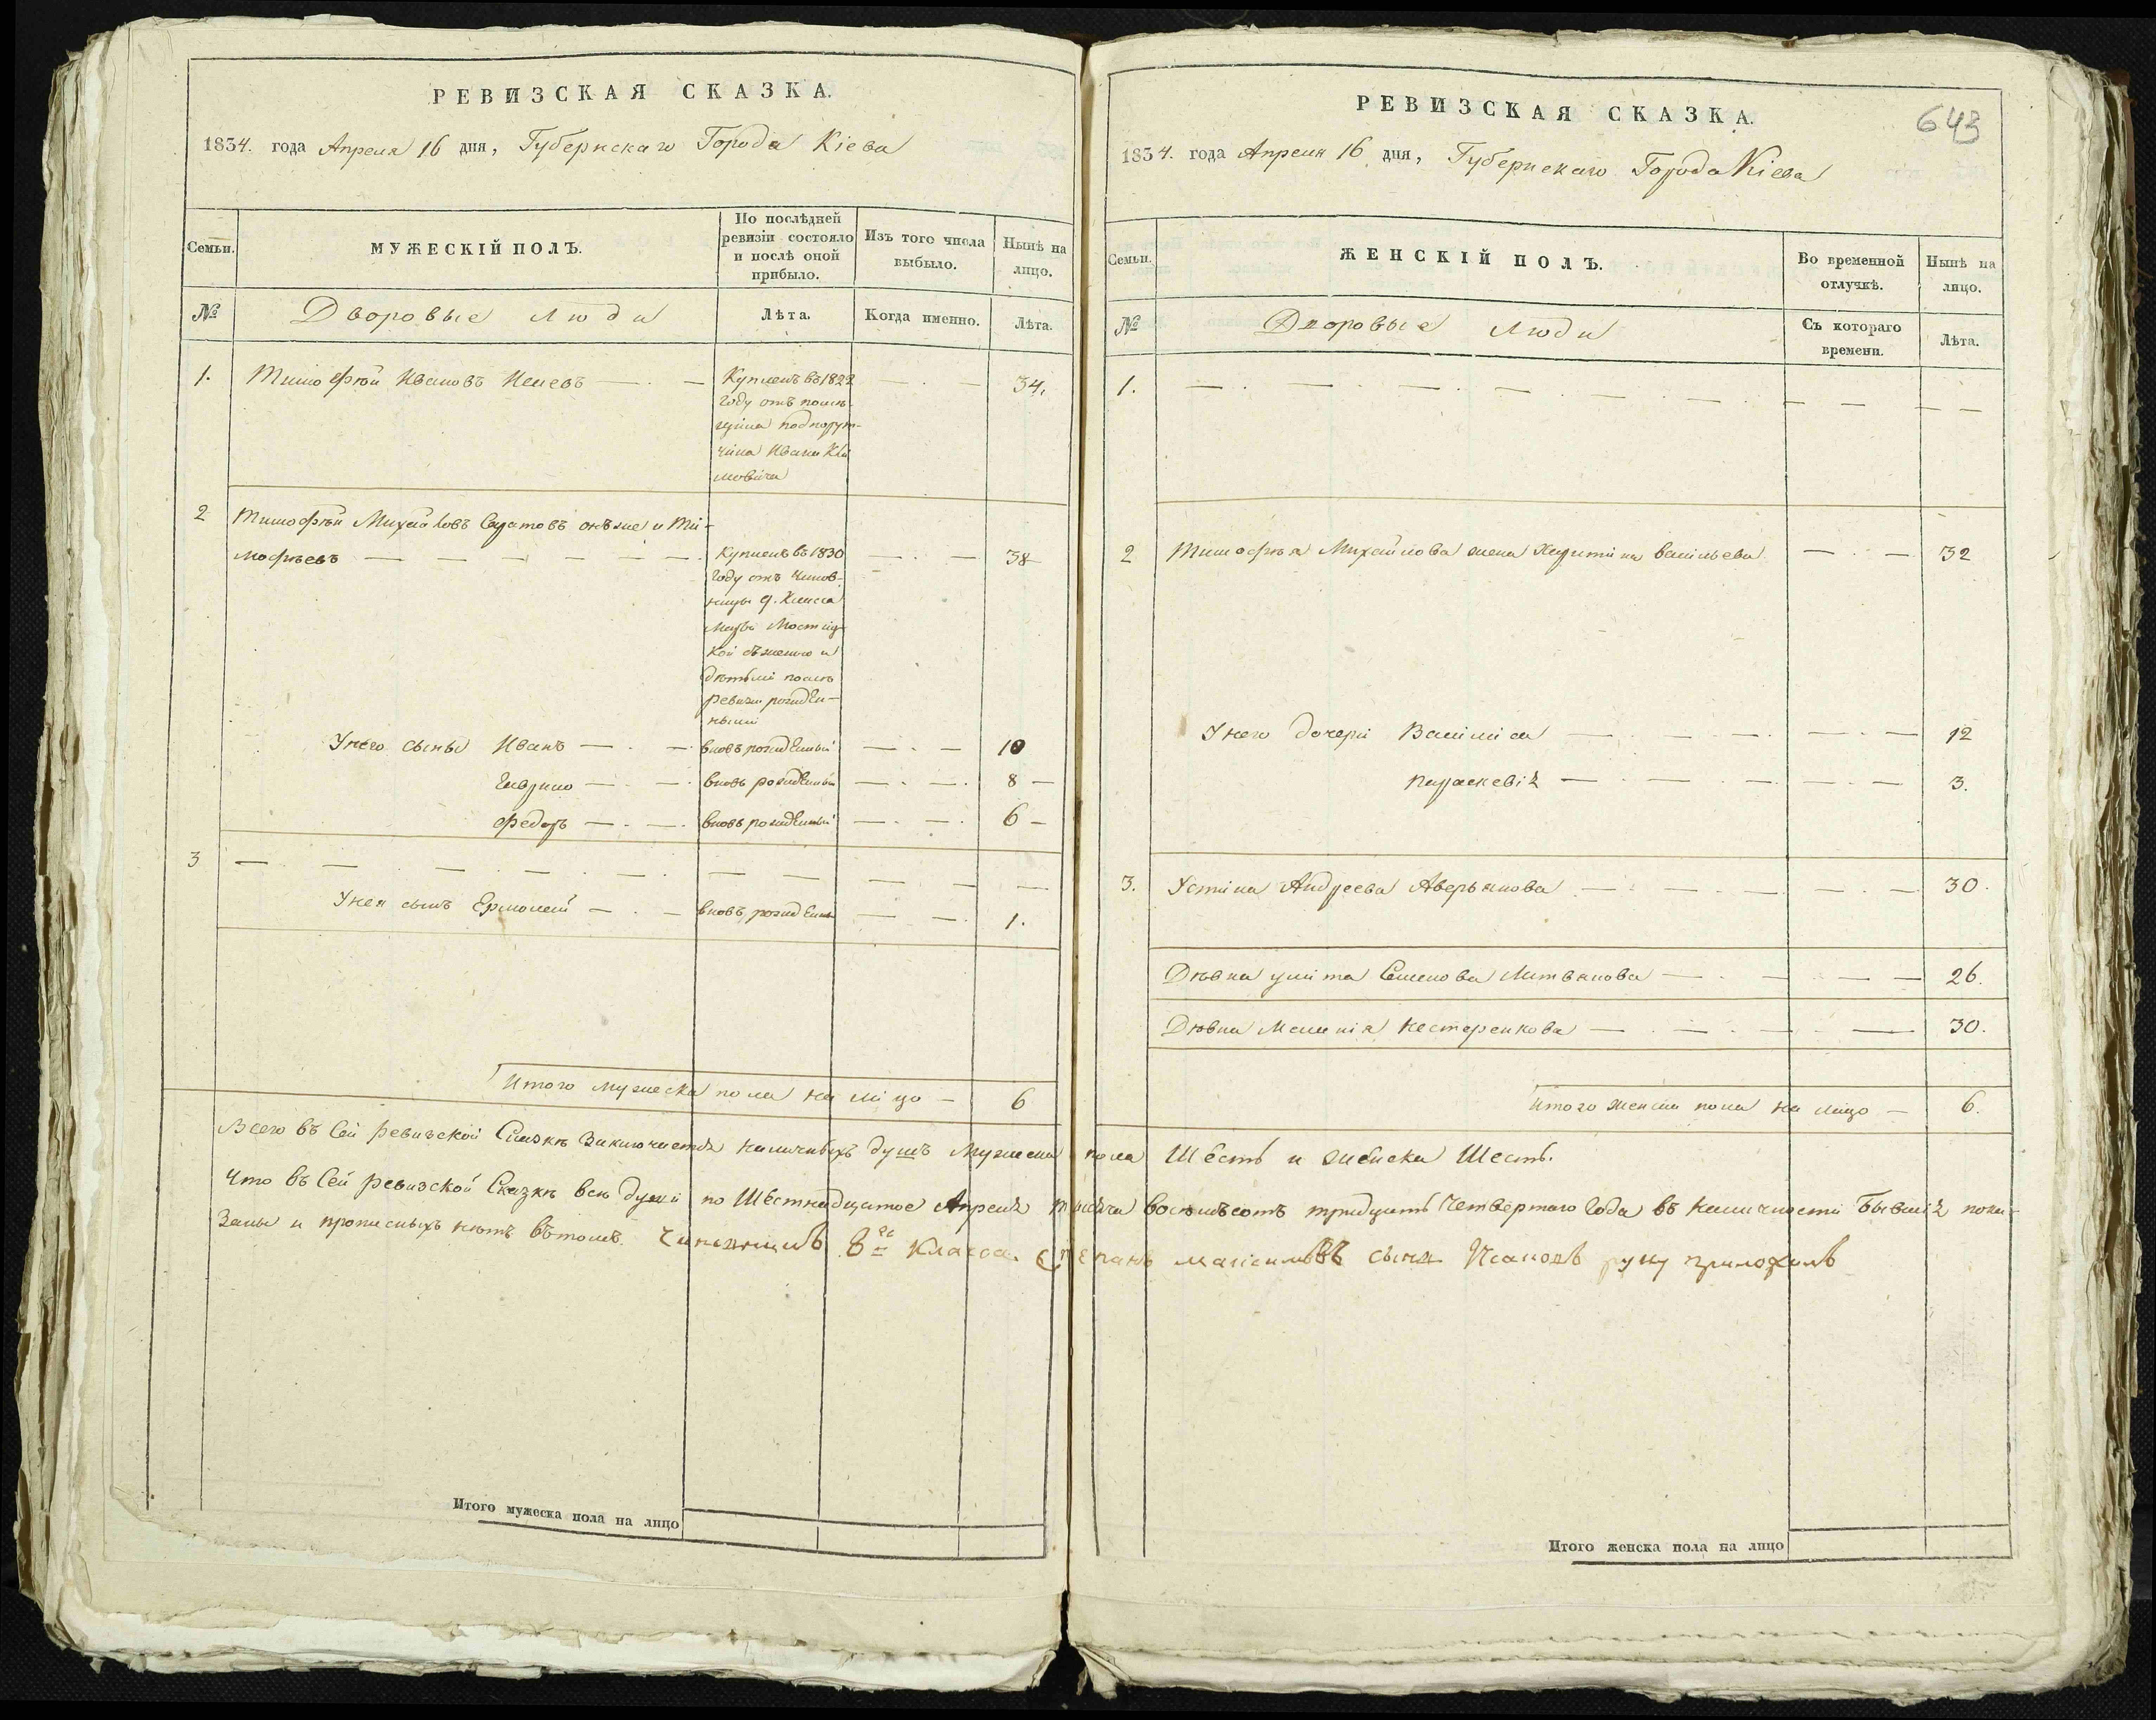 РЕВИЗСКАЯ СКАЗКА.
1834. года Апреля 16 дня, Губернскаго Города Кіева
Семьи.
МУЖЕСКІЙ ПОЛЪ.
По послѣдней ревизіи состояло и послѣ оной прибыло.
Изъ того числа выбыло.
Нынѣ на лицо.
№
Дворовые люди
Лѣта.
Когда именно.
Лѣта.
1. Тимофѣй Ивановъ
Купленъ въ 1822 34.
году отъ помѣ-
щика подпорут-
чика Ивана Кли
мовича
2 Тимофѣй Михайловъ онъ же и Ти-
мофѣевъ
Купленъ въ 1830 38
году отъ чинов-
ницы 9. класса
кой съ женою и
дѣтьми послѣ
ревизіи рожден-
ными
У него сыны Иванъ вновь рожденный 10
Гаврило вновь рожденный 8
Федоръ вновь рожденный 6
3
У нея сынъ Ермолай вновь рожденъ 1.
Итого мужеска пола на лицо 6
Всего въ сей ревизской Сказкѣ Заключается наличныхъ душъ Мужеска пола Шесть и женска Шесть.
Что въ Сей ревизской Сказкѣ всѣ души по Шестнадцатое Апреля тысяча восемьсотъ тридцать Четвертаго Года въ наличности Бывшія пока-
заны и прописныхъ нѣтъ въ томъ. Чиновникъ 8го Класса Степанъ максимовъ сынъ руку приложилъ
Итого мужеска пола на лицо
РЕВИЗСКАЯ СКАЗКА.
643
1834. года Апреля 16 дня, Губернскаго Города Кіева
Семьи.
ЖЕНСКІЙ ПОЛЪ.
Во временной отлучкѣ.
Нынѣ на лицо.
№
Дворовые Люди
Съ котораго времени.
Лѣта.
1.
2 Тимофѣя Михайлова жена Харитина васильева 32
У него дочери Василиса 12
Параскевія 3.
3. Устина Андреева Аверьянова 30.
Дѣвка улита Семенова Литвинова 26.
Дѣвка Меланія нестеренкова 30.
Итого женска пола на лицо 6.
Итого женска пола на лицо